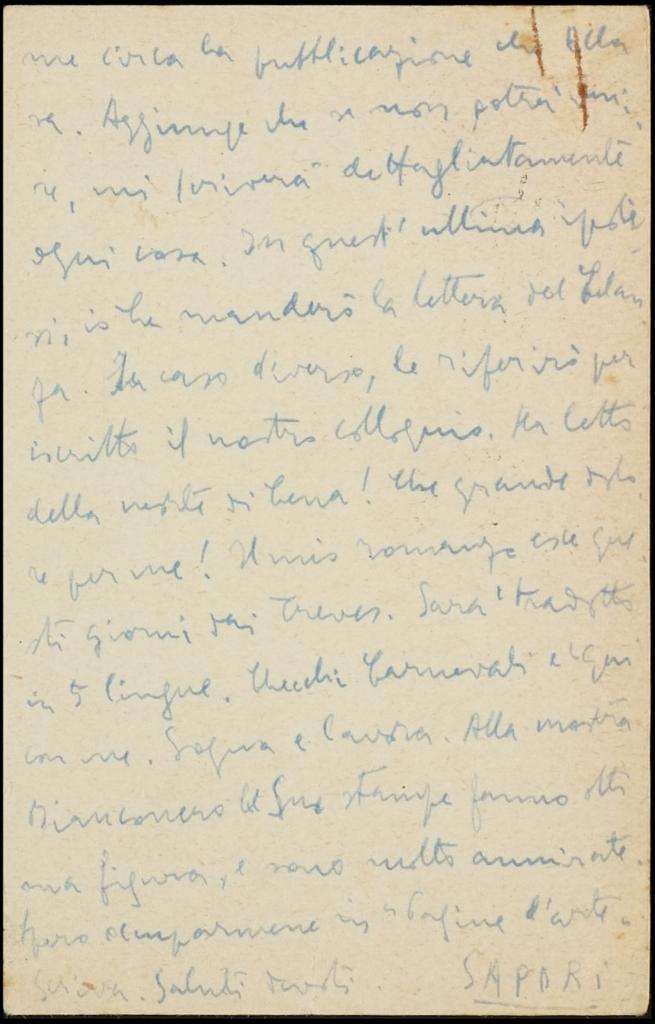 me circa la pubblicazione che Alla
ra. Aggiunge che se non potrà veni-
re, mi scriverà dettagliatamente
ogni cosa. In quest' ultima ipote
si, io le manderò la lettera del
In caso diverso, le riferirò per
iscritto il nostro colloquio. Ha letto
della morte di Cena! Che grande dolo
re per me! Il mio romanzo esce que
sti giorni dai Treves. Sara' tradotto
in 5 lingue. Checchi Carnevali e' qui
con me. Sogna e lavora. Alla mostra
Bianconero le Sue stampe fanno otti
ma figura, e sono molto ammirate.
Spero occuparmene in "Pagine d'arte".
Scriva. Saluti devoti. SAPORI